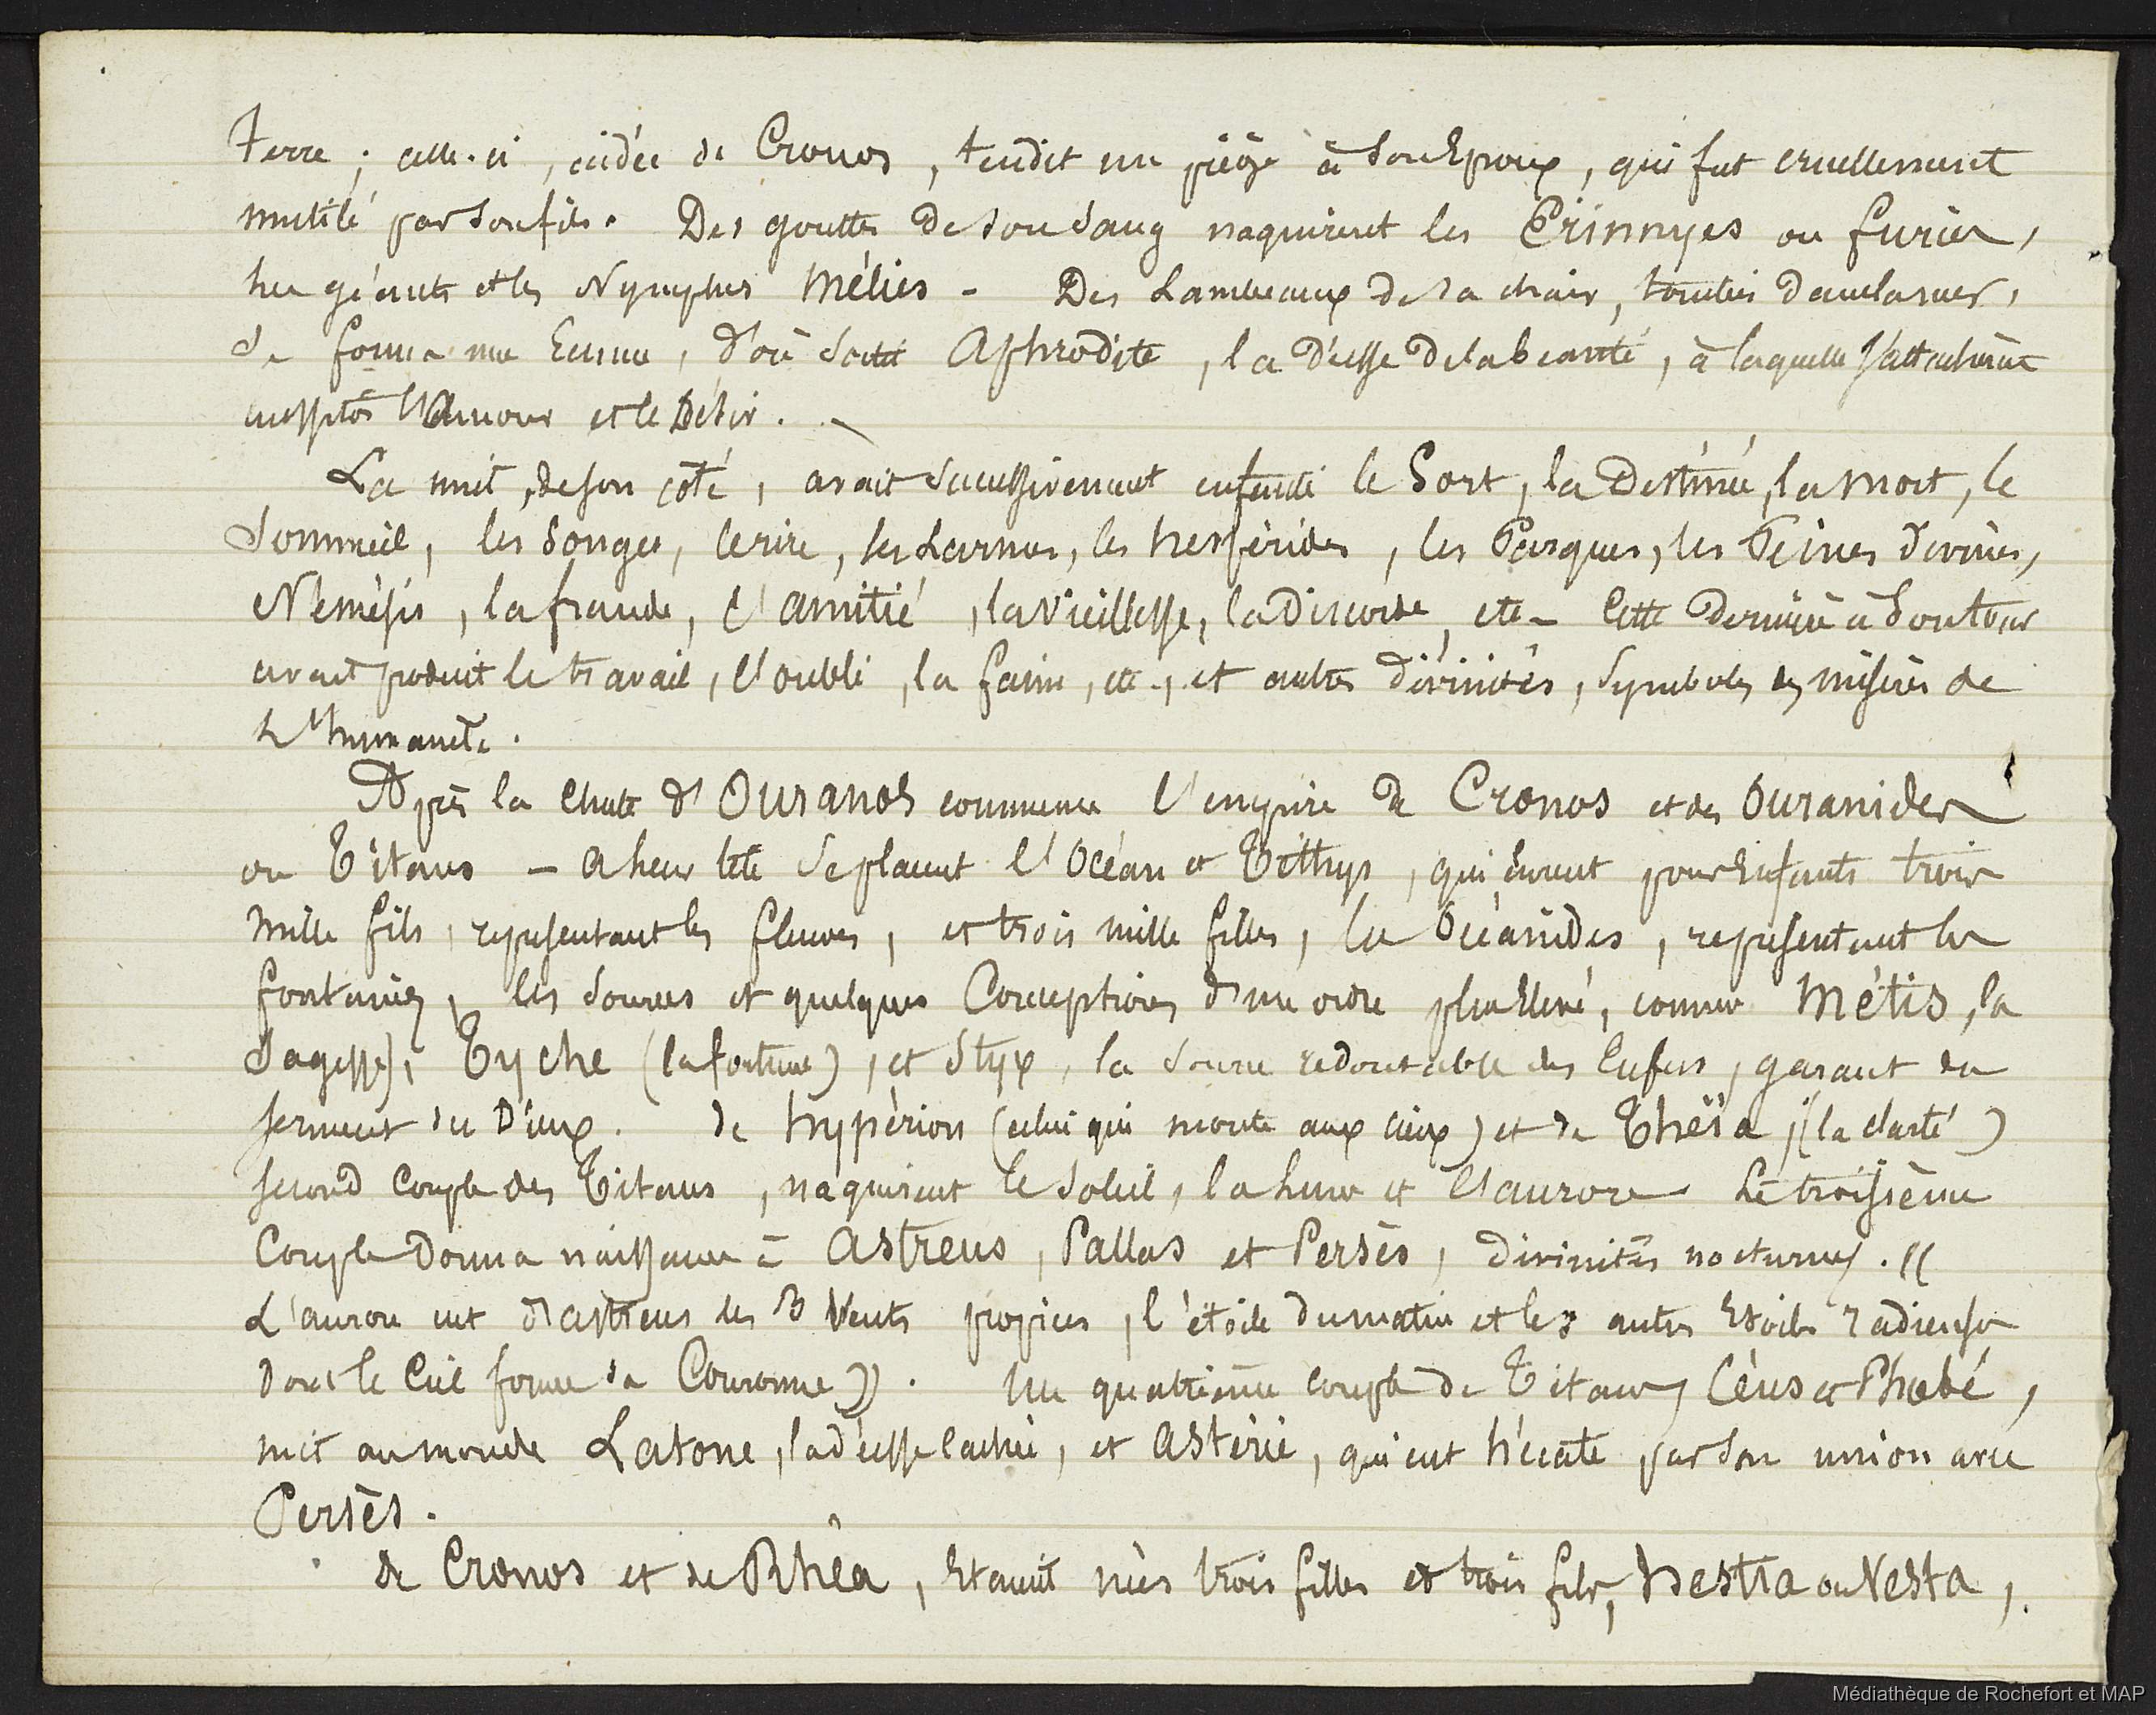 Terre ; celle-ci, aidée de Cronos, tendit un piège à son Epoux, qui fut cruellement
mutilé par son fils. Des gouttes de son sang naquirent les Erinnyes ou furies,
les géants et les Nymphes Mélies - Des Lambeaux de sa chair, tombés dans la mer,
se forma une Ecume, d'où sortit Aphrodite, la Déesse de la beauté, à laquelle s'attachèrent
aussitôt l'Amour et le Désir. -
La nuit, de son côté, avait successivement enfanté le Sort, la Destinée, la mort, le
Sommeil, les Songes, le rire, les Larmes, les hespérides, les Parques, les Peines divines,
Némésis, la fraude, l'amitié, la Vieillesse, la Discorde, etc - Cette dernière à son tour
avait produit le travail, l'oubli, la faim, etc., et autres divinités, Symboles des misères de
L'humanité.
Après la chute d'Ouranos commence l'empire de Cronos et des Ouranides
ou Titans - A leur tête se placent l'Océan et Téthys, qui eurent pour Enfants trois
mille fils, représentant les fleuves, et trois mille filles, les Océanides, représentant les
fontaines, les sources et quelques Conceptions d'un ordre plus Elevé, comme Métis, la
Sagesse), Tyché (la fortune), et Styx, la source redoutable des Enfers, garant du
serment des Dieux. de hypérion (celui qui monte aux cieux) et de Théïa, (la clarté)
second Couple des Titans, naquirent le Soleil, la Lune et l'aurore - Le troisième
Couple donna naissance à Astreus, Pallas et Persès, divinités nocturnes. ((
L'aurore eut d'astreus les 3 Vents propices, l'étoile du matin et les autres Etoiles radieuses
dont le Ciel forme sa Couronne)). Un quatrième couple de Titans, Céus et Phoebé,
mit au monde Latone, la déesse cachée, et Astérie, qui eut hécate par son union avec
Persès.
de Cronos et de Rhéa, Etaient nés trois filles et trois fils, hestia ou Vesta,
Médiathèque de Rochefort et MAP